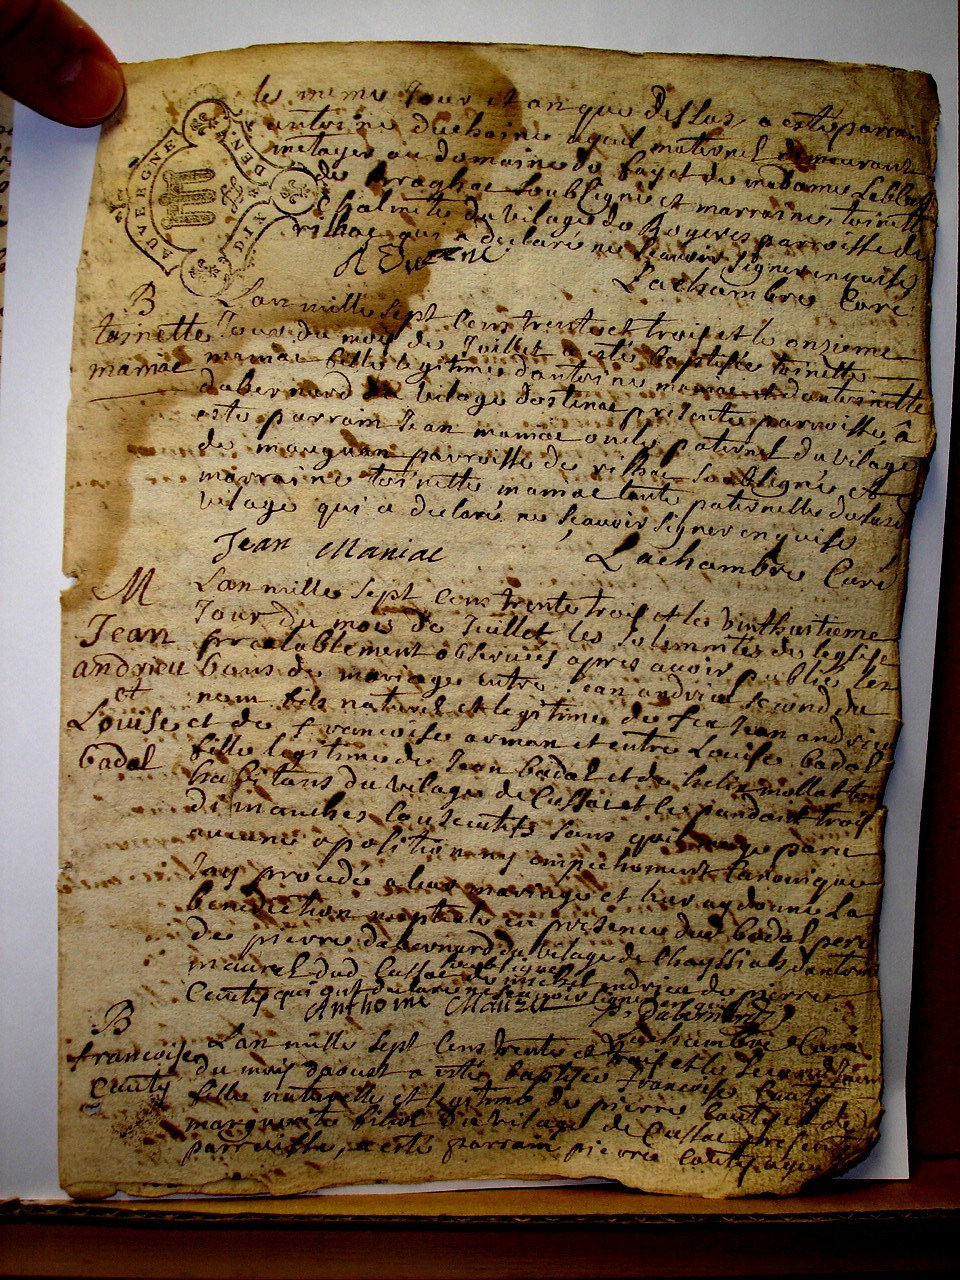 AUVERGNE
DIX DEN
le meme Jour et an que dessus a esté parrain
antoine duchaine ayeul maternel demeurant
metayer au domaine du fayet de madame Leblan
de soubsigné et marraine toinette
Chalmette du vilage de Rogeres parroisse de
rilhac qui a declaré ne scavoir signer enquise
Lachambre Curé
B
toinette
maniac
Lan mille sept cens trente et trois et le onzieme
Jour du mois de Juillet a esté baptisée toinette
maniac fille legitime dantoine maniac et dantoinette
dabernard du vilage presente parroisse, a
esté parrain Jean maniac oncle paternel du vilage
de parroisse de rilhac soubsigné et
marraine toinette maniac tante paternelle dususd
vilage qui a declaré ne scavoir signer enquise
Jean Maniac
Lachambre Curé
M
Jean
andrieu
et
Louise
badal
Lan mille sept cens trente trois et le vinthuitieme
Jour du mois de Juillet les solemnites de leglise
prealablement observées apres avoir publié les
bans de mariage entre Jean andrieu second du
nom fils naturel et legitime de feu Jean andrieu
et de francoise arman et entre Louise badal
fille legitime de Jean badal et de helix mollat
habitans du vilage de Cussac et ce pandant trois
dimanches consecutifs sans quil aye paru
aucune oposition ny empechement canonique
Jay procedé a leur mariage et leur ay donné la
benediction nuptiale en presence dud badal pere
de pierre dabernard du vilage de Chayssials dantoine
maurel dud Cussac soubsignes de michel andrieu de pierre
Ceuty qui ont declaré ne scavoir signer enquis
Anthoine Mauzel
P dabernard
Lachambre Curé
B
francoise
Ceuty
Lan mille sept cens trente et trois et le second Jour
du mois daoust a esté baptisée francoise Ceuty
fille naturelle et legitime de pierre Ceuty et de
marguerite du vilage de Cussac presente
parroisse, a esté parrain pierre Ceuty ayeul